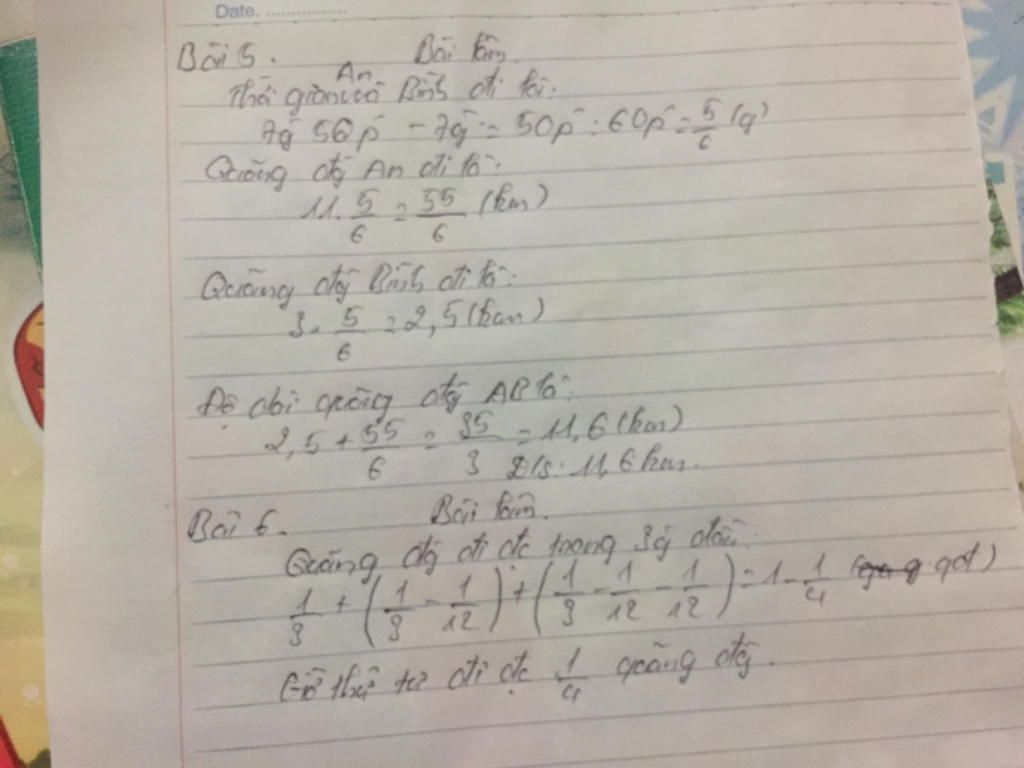 Date. ................
Bài 5. Bài làm.
An
Thời gian và Bình đi là:
7g 50p - 7g = 50p = 60p = 5/6 (g)
Quãng đg An đi là:
11. 5/6 = 55/6 (km)
Quãng đg Bình đi là:
3. 5/6 = 2,5 (km)
Độ dài quãng đg AB là:
2,5 + 55/6 = 35/3 = 11,6 (km)
Đ/s: 11,6 km.
Bài 6. Bài làm.
Quãng đg đi đc trong 3g đầu:
1/3 + (1/3 - 1/12) + (1/3 - 1/12 - 1/12) = 1 - 1/4 (qđ)
Giờ thứ tư đi đc 1/4 quãng đg.